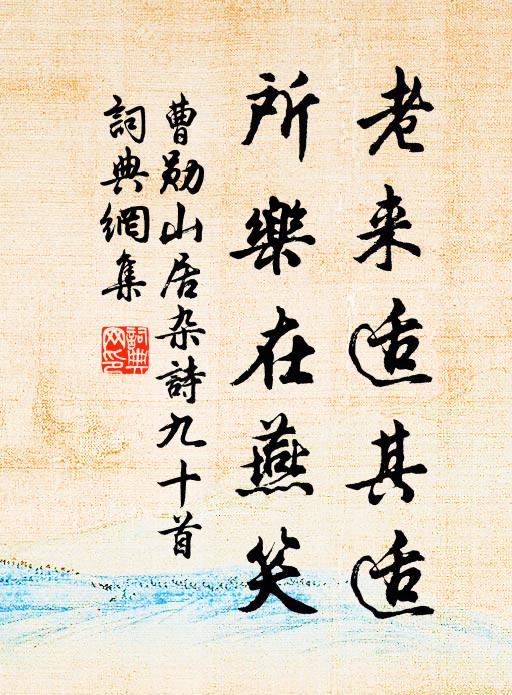 老来适其适
所樂在燕笑
曹勛山居杂詩九十首
詞典網集
詞典
网印